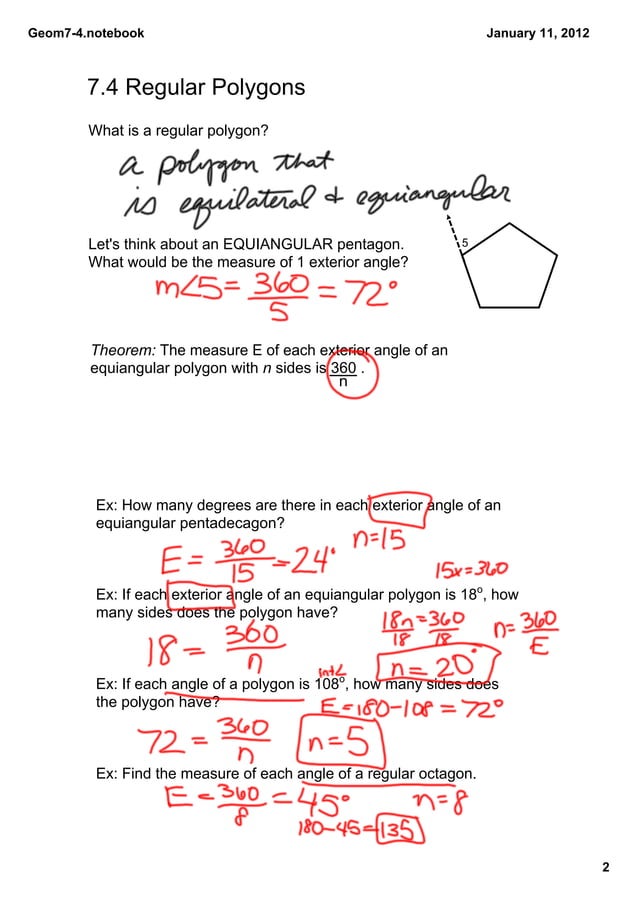 Geom7-4.notebook
January 11, 2012
7.4 Regular Polygons
What is a regular polygon?
a polygon that
is equilateral & equiangular
Let's think about an EQUIANGULAR pentagon.
What would be the measure of 1 exterior angle?
5
m∠5 = 360/5 = 72°
Theorem: The measure E of each exterior angle of an
equiangular polygon with n sides is 360/n .
Ex: How many degrees are there in each exterior angle of an
equiangular pentadecagon?
n=15
E = 360/15 = 24°
15x=360
Ex: If each exterior angle of an equiangular polygon is 18°, how
many sides does the polygon have?
18 = 360/n
18n/18 = 360/18
n = 360/E
n = 20°
Ex: If each angle of a polygon is 108°, how many sides does
int∠
the polygon have?
E = 180-108 = 72°
72 = 360/n
n=5
Ex: Find the measure of each angle of a regular octagon.
E = 360/8 = 45°
n=8
180-45=135
2